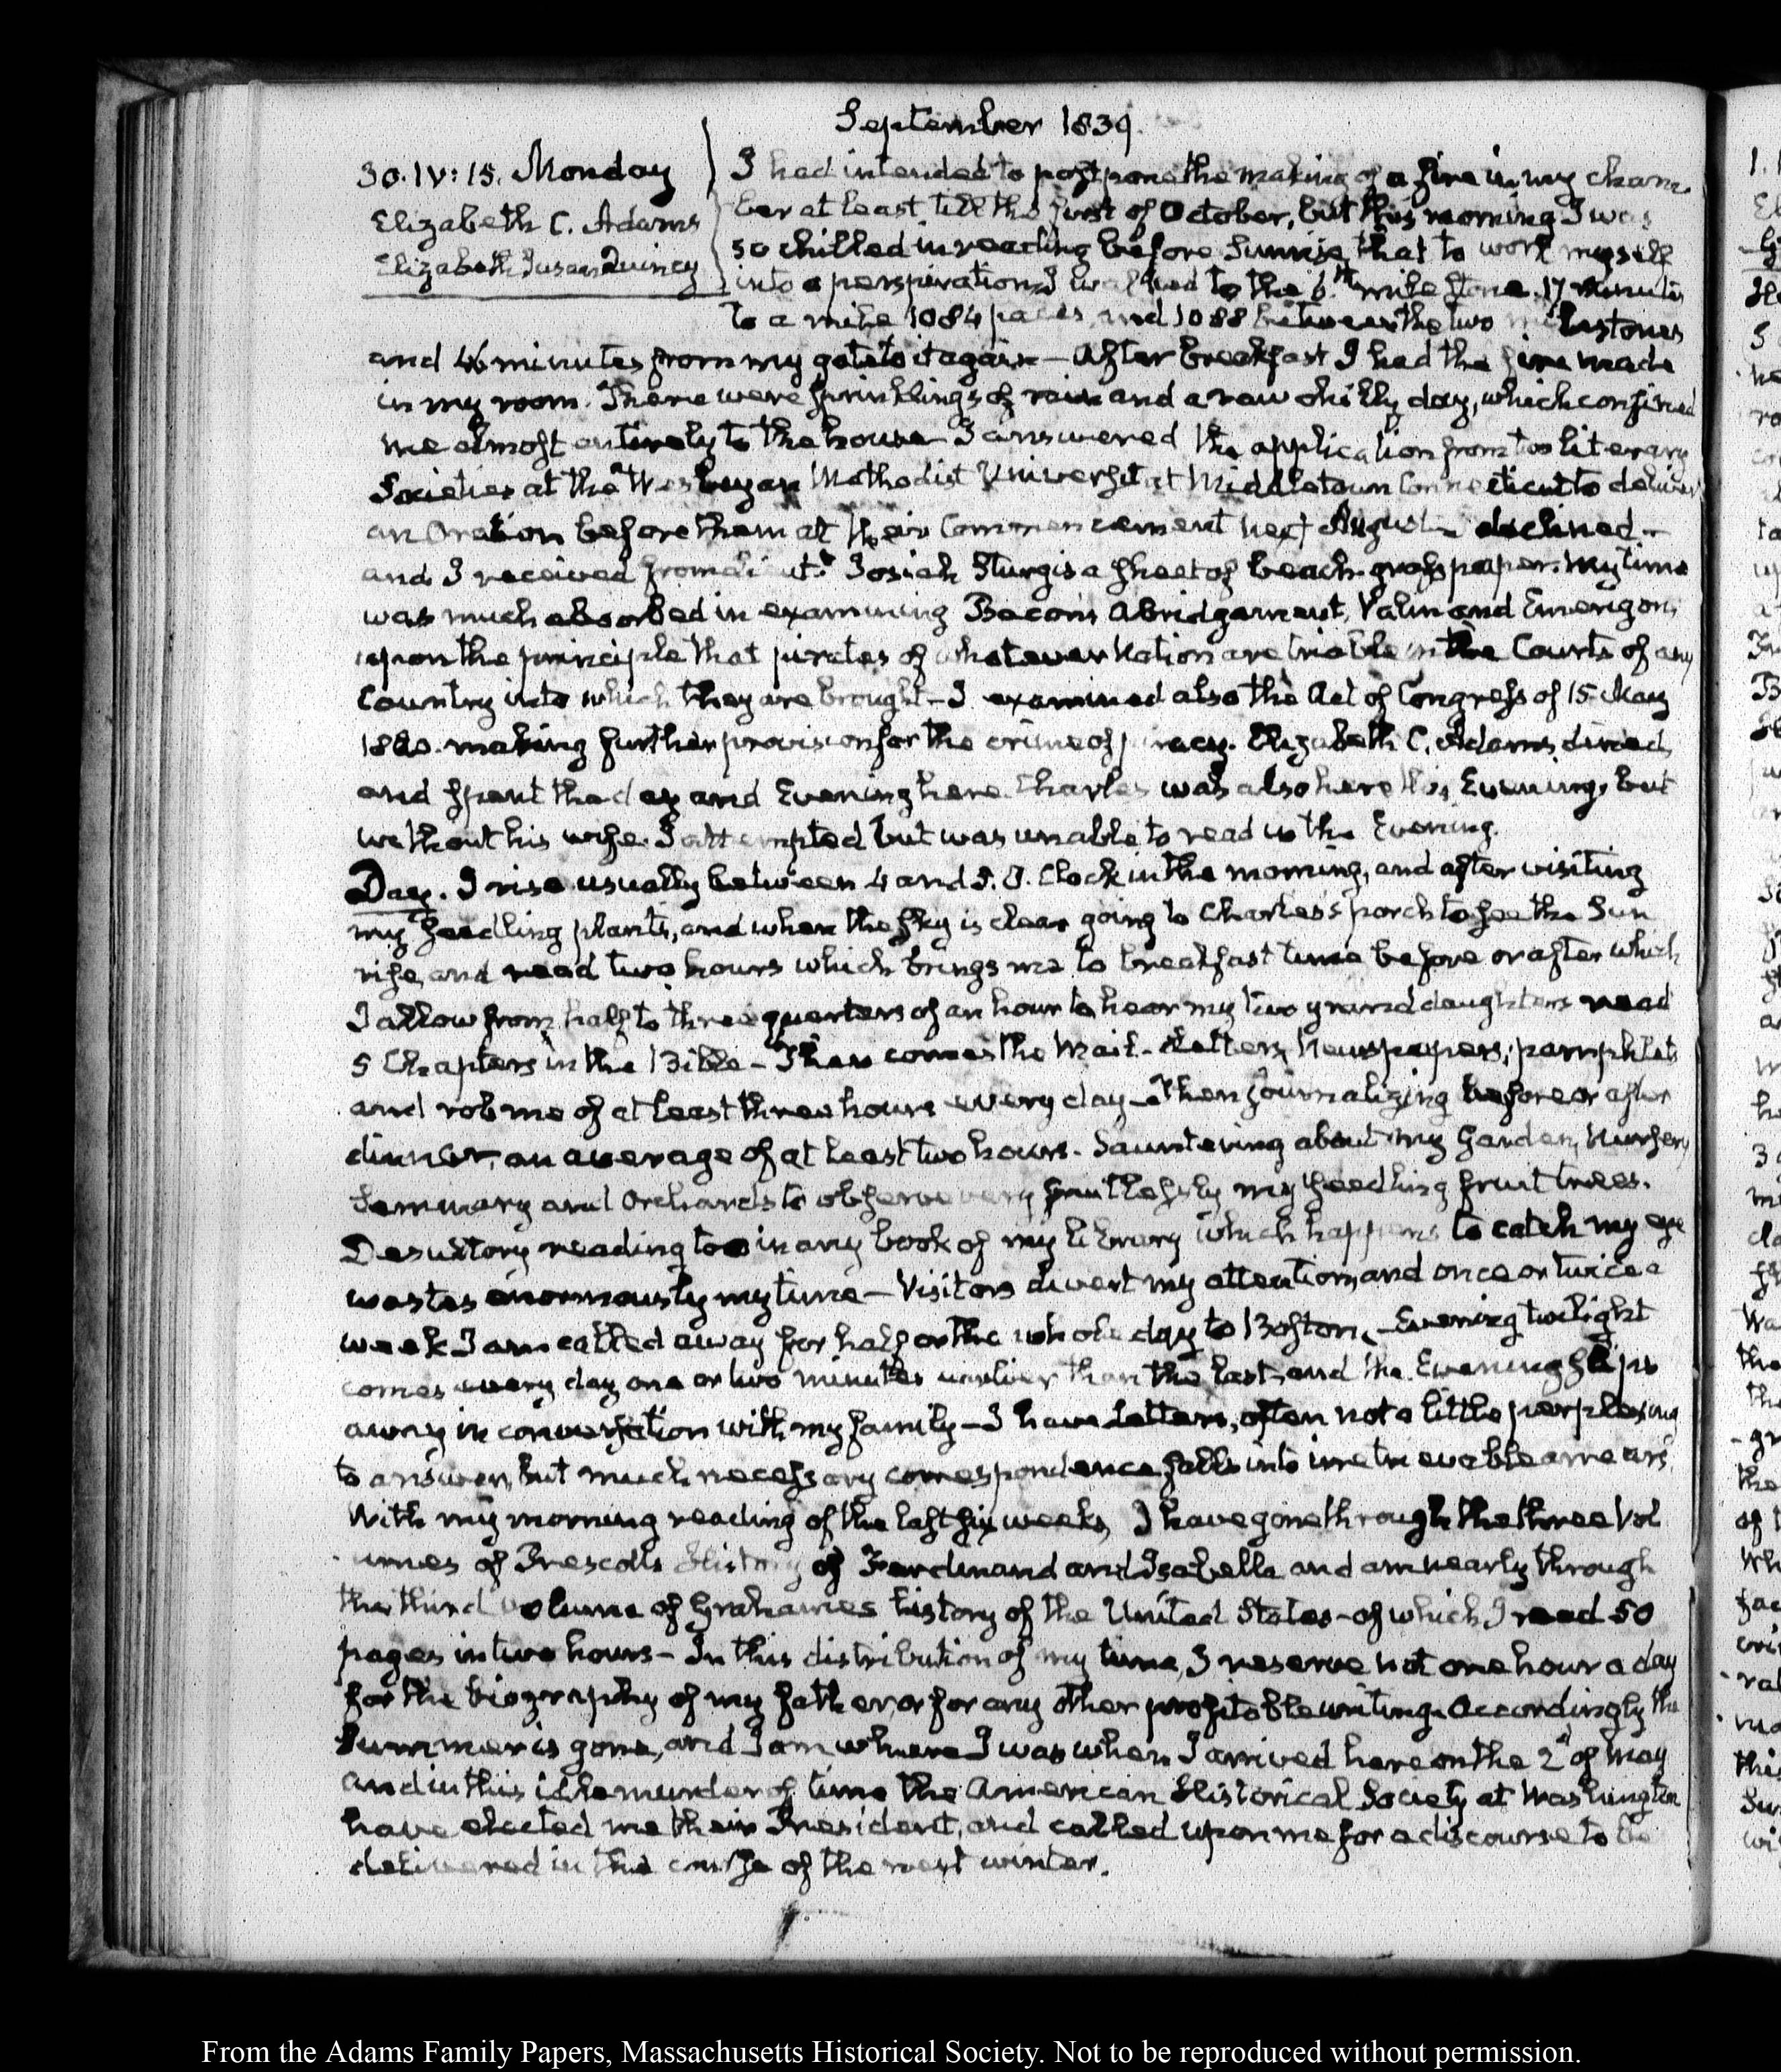 September 1839.
30. IV: 15. Monday
Elizabeth C. Adams
Elizabeth Susan Quincy
I had intended to postpone the making of a fire in my cham
ber at least till the first of October, but this morning I was
so chilled in reading before Sunrise that to work myself
into a perspiration I walked to the 6.th mile stone. 17 minutes
to a mile 1084 paces, and 1088 between the two milestones
and 46 minutes from my gate to it again — After breakfast I had the fire made
in my room. There were sprinklings of rain and a raw chilly day, which confined
me almost entirely to the house — I answered the application from two literary
Societies at the Wesleyan Methodist Universit at Middletown Connecticut to deliver
an Oration before them at their Commencement next August — declined —
and I received from Lieut.t Josiah Sturgis a sheet of beach-grass paper. My time
was much absorbed in examining Bacon's Abridgement, Valin and Emerigon,
upon the principle that pirates of whatever Nation are triable in the Courts of any
Country into which they are brought — I examined also the Act of Congress of 15 May
1820. making further provision for the crime of piracy. Elizabeth C. Adams dined
and spent the day and Evening here. Charles was also here this Evening, but
without his wife. I attempted but was unable to read in the Evening.
Day. I rise usually between 4 and 5. O. Clock in the morning, and after visiting
my seedling plants, and when the sky is clear going to Charles's porch to see the Sun
rise, and read two hours which brings me to breakfast time before or after which
I allow from half to three quarters of an hour to hear my two grand daughters read
5 Chapters in the Bible — Then comes the Mail — Letters, Newspapers, pamphlets
and rob me of at least three hours every day — Then journalizing before or after
dinner, an average of at least two hours. Sauntering about my Garden, Nursery
Seminary and Orchards to observe very fruitlessly my seedling fruit trees.
Desultory reading too in any book of my library which happens to catch my eye
wastes enormously my time — Visitors divert my attention, and once or twice a
week I am called away for half or the whole day to Boston. — Evening twilight
comes every day one or two minutes earlier than the last, and the Evening slips
away in conversation with my family — I have letters, often not a little perplexing
to answer, but much necessary correspondence falls into irretrievable arrears.
With my morning reading of the last six weeks, I have gone through the three Vol
umes of Prescott's History of Ferdinand and Isabella and am nearly through
the third volume of Grahames history of the United States — of which I read 50
pages in two hours — In this distribution of my time, I reserve not one hour a day
for the biography of my father, or for any other profitable writing. Accordingly the
Summer is gone, and I am where I was when I arrived here on the 2d of May
and in this idle murder of time the American Historical Society at Washington
have elected me their President, and called upon me for a discourse to be
delivered in the course of the next winter.
From the Adams Family Papers, Massachusetts Historical Society. Not to be reproduced without permission.